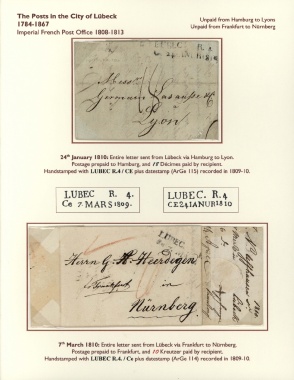 The Posts in the City of Lübeck
1784-1867
Imperial French Post Office 1808-1813
Unpaid from Hamburg to Lyons
Unpaid from Frankfurt to Nürnberg
LUBEC R. 4
Lyon
24th January 1810: Entire letter sent from Lübeck via Hamburg to Lyon.
Postage prepaid to Hamburg, and 18 Décimes paid by recipient.
Handstamped with LUBEC R.4 / CE plus datestamp (ArGe 115) recorded in 1809-10.
LUBEC R. 4
Ce 7. MARS 1809.
LUBEC. R. 4
CE 24 JANUR 1810
LUBEC
Herrn G. H. Heerdegen
Frankfurt
in
Nürnberg
7th March 1810: Entire letter sent from Lübeck via Frankfurt to Nürnberg.
Postage prepaid to Frankfurt, and 10 Kreutzer paid by recipient.
Handstamped with LUBEC R.4. / Ce plus datestamp (ArGe 114) recorded in 1809-10.